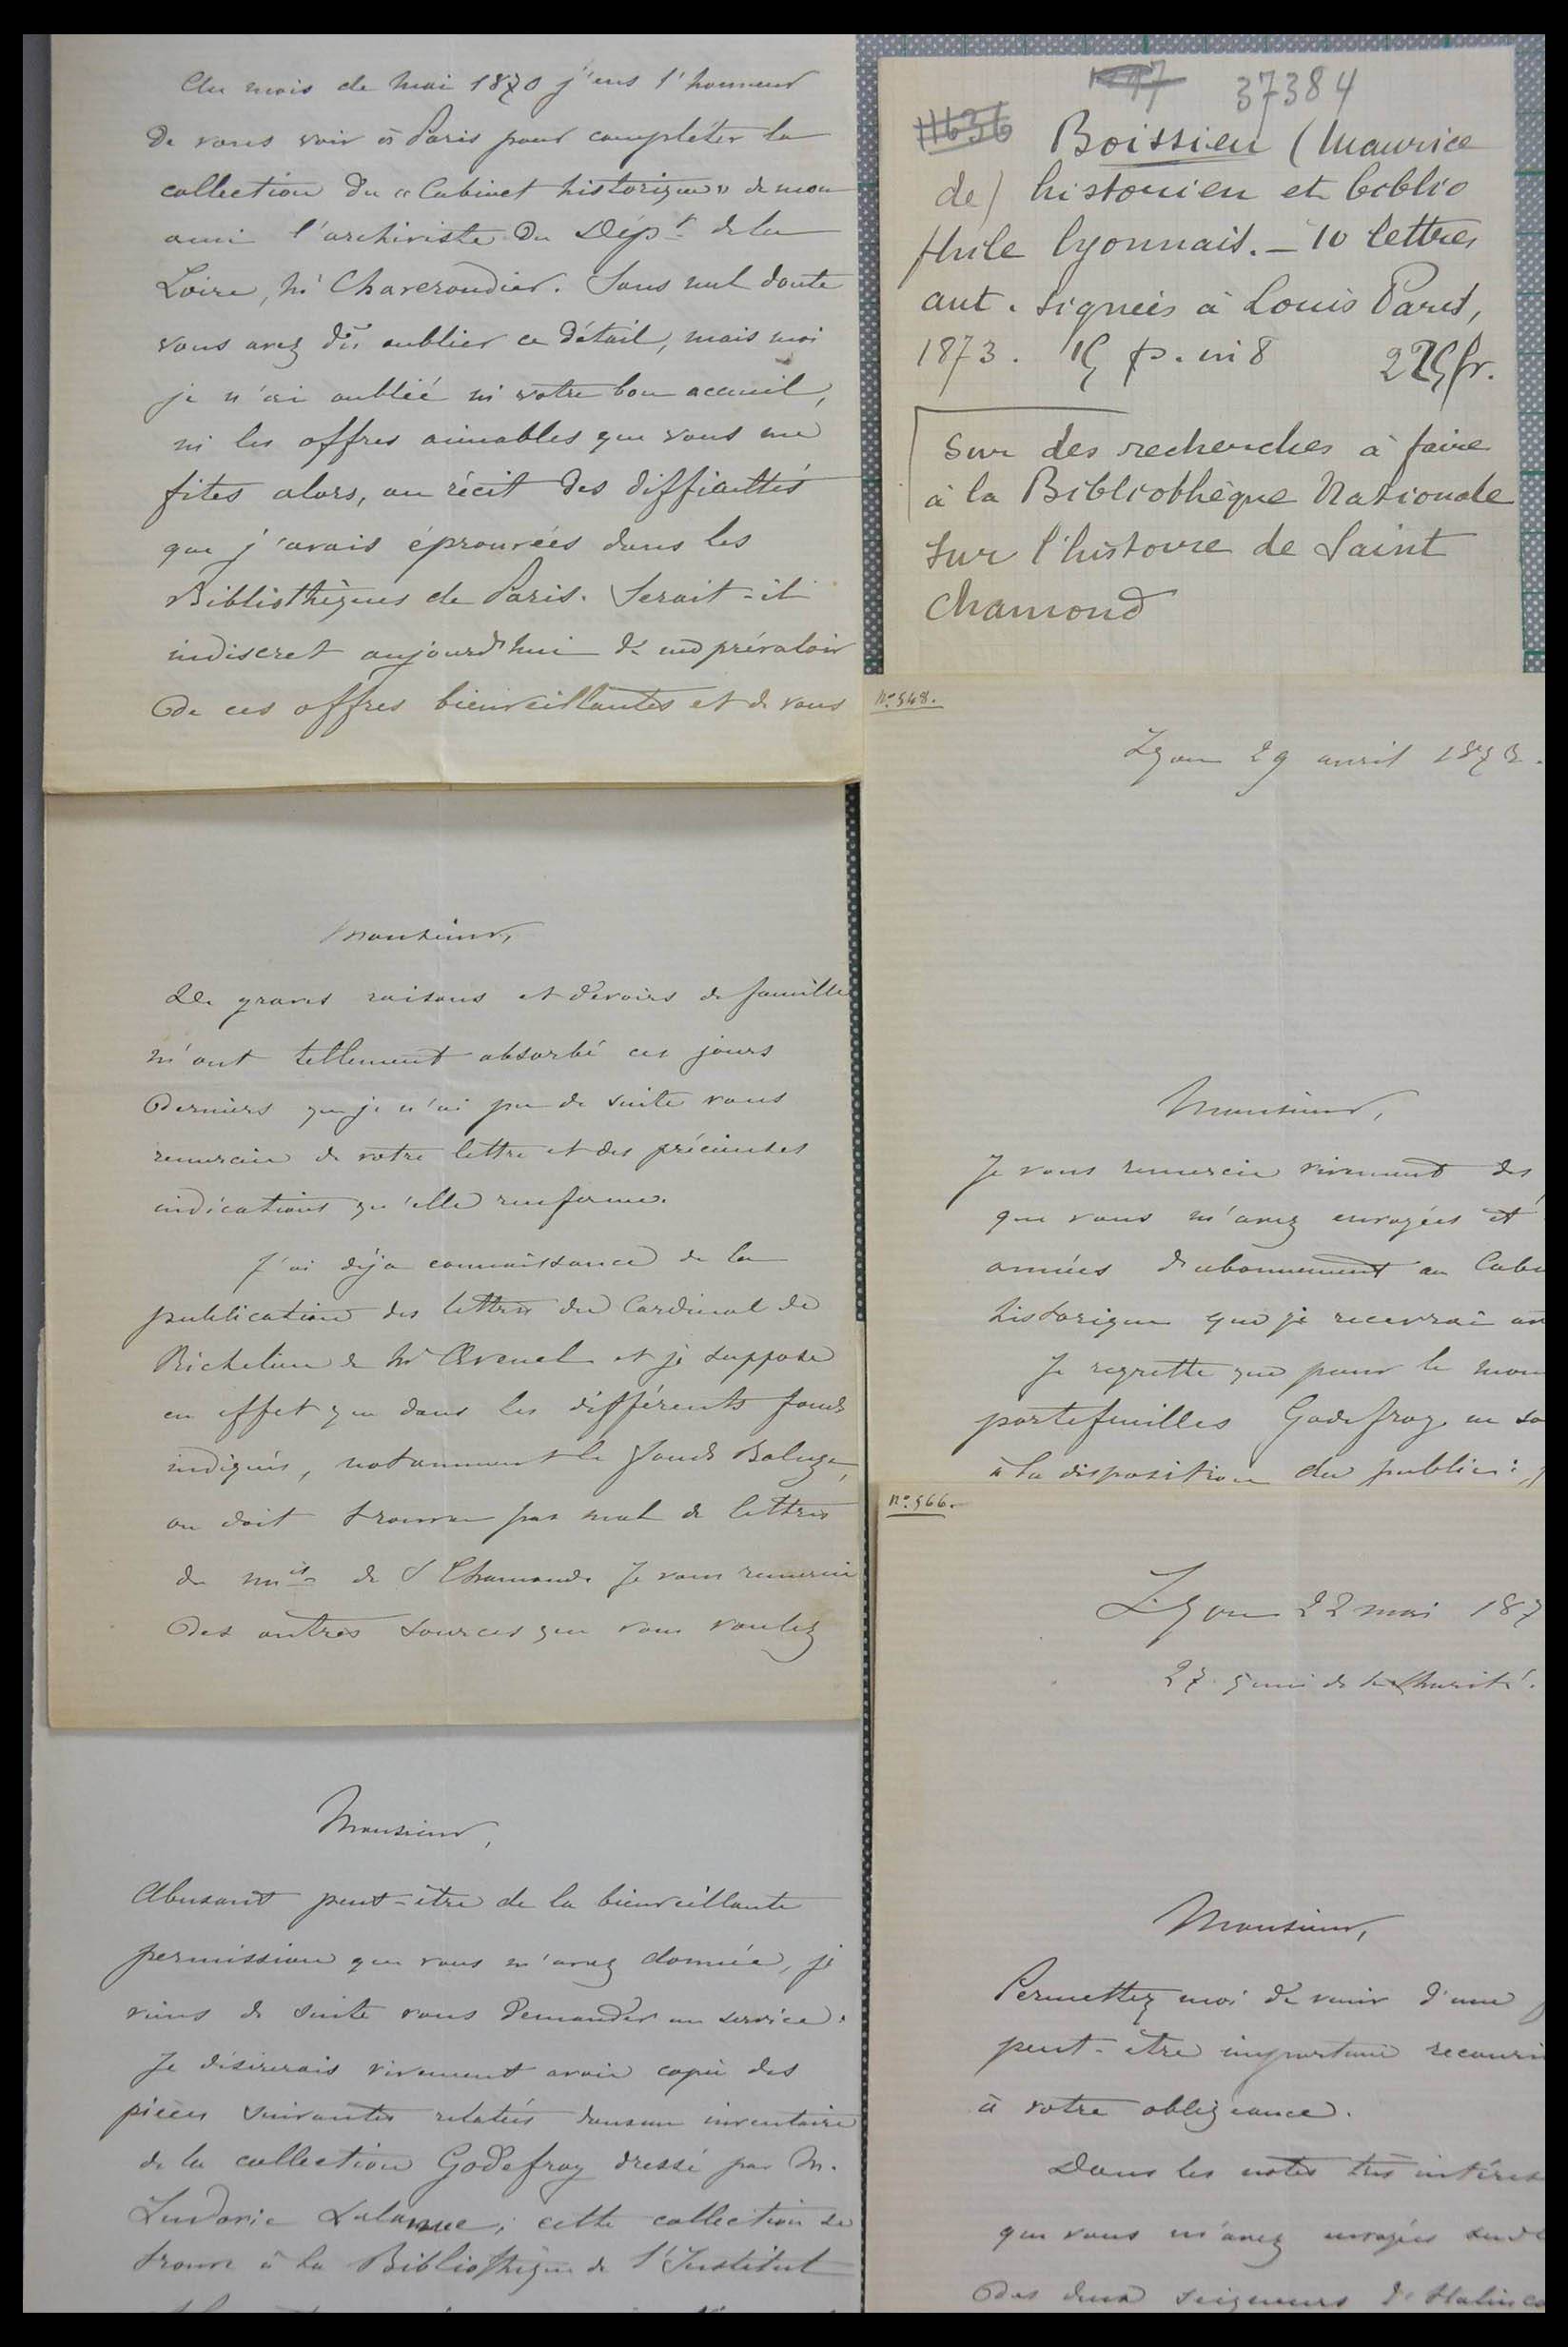 Au mois de mai 1870 j'eus l'honneur
de vous voir à Paris pour compléter la
collection du « Cabinet historique » de mon
ami l'archiviste du Dépt de la
Loire, Mr Chaverondier. Sans nul doute
vous avez dû oublier ce détail, mais moi
je n'ai oublié ni votre bon accueil,
ni les offres aimables que vous me
fites alors, au récit des difficultés
que j'avais éprouvées dans les
Bibliothèques de Paris. Serait-il
indiscret aujourd'hui de me prévaloir
de ces offres bienveillantes et de vous
Monsieur,
De graves raisons et devoirs de famille
m'ont tellement absorbé ces jours
derniers que je n'ai pu de suite vous
remercier de votre lettre et des précieuses
indications qu'elle renferme.
J'ai déjà connaissance de la
publication des lettres du Cardinal de
Richelieu de Mr Avenel et je suppose
en effet que dans les différents fonds
indiqués, notamment le fonds Baluze,
on doit trouver pas mal de lettres
du mis de St Chamond. Je vous remercie
des autres sources que vous voulez
Monsieur,
Abusant peut-être de la bienveillante
permission que vous m'avez donnée, je
viens de suite vous demander un service.
Je désirerais vivement avoir copie des
pièces suivantes relatées dans un inventaire
de la collection Godefroy dressé par M.
Ludovic Lalanne; cette collection se
trouve à la Bibliothèque de l'Institut
37384
11636 Boissieu (Maurice
de) historien et biblio
phile lyonnais. – 10 lettres
aut. signées à Louis Paris,
1873. 15 p. in 8 225 fr.
Sur des recherches à faire
à la Bibliothèque Nationale
sur l'histoire de Saint
Chamond
No. 548.
Lyon 29 avril 1873.
Monsieur,
Je vous remercie vivement des
que vous m'avez envoyées et
années d'abonnement au Cabi
historique que je recevrai
Je regrette que pour le mom
portefeuilles Godefroy ne so
à la disposition du public:
No. 566.
Lyon 22 mai 187
27 quai de la Charité.
Monsieur,
Permettez moi de venir d'une
peut-être importune recourir
à votre obligeance.
Dans les notes très intéres
que vous m'avez envoyées
des deux seigneurs d'Halinco